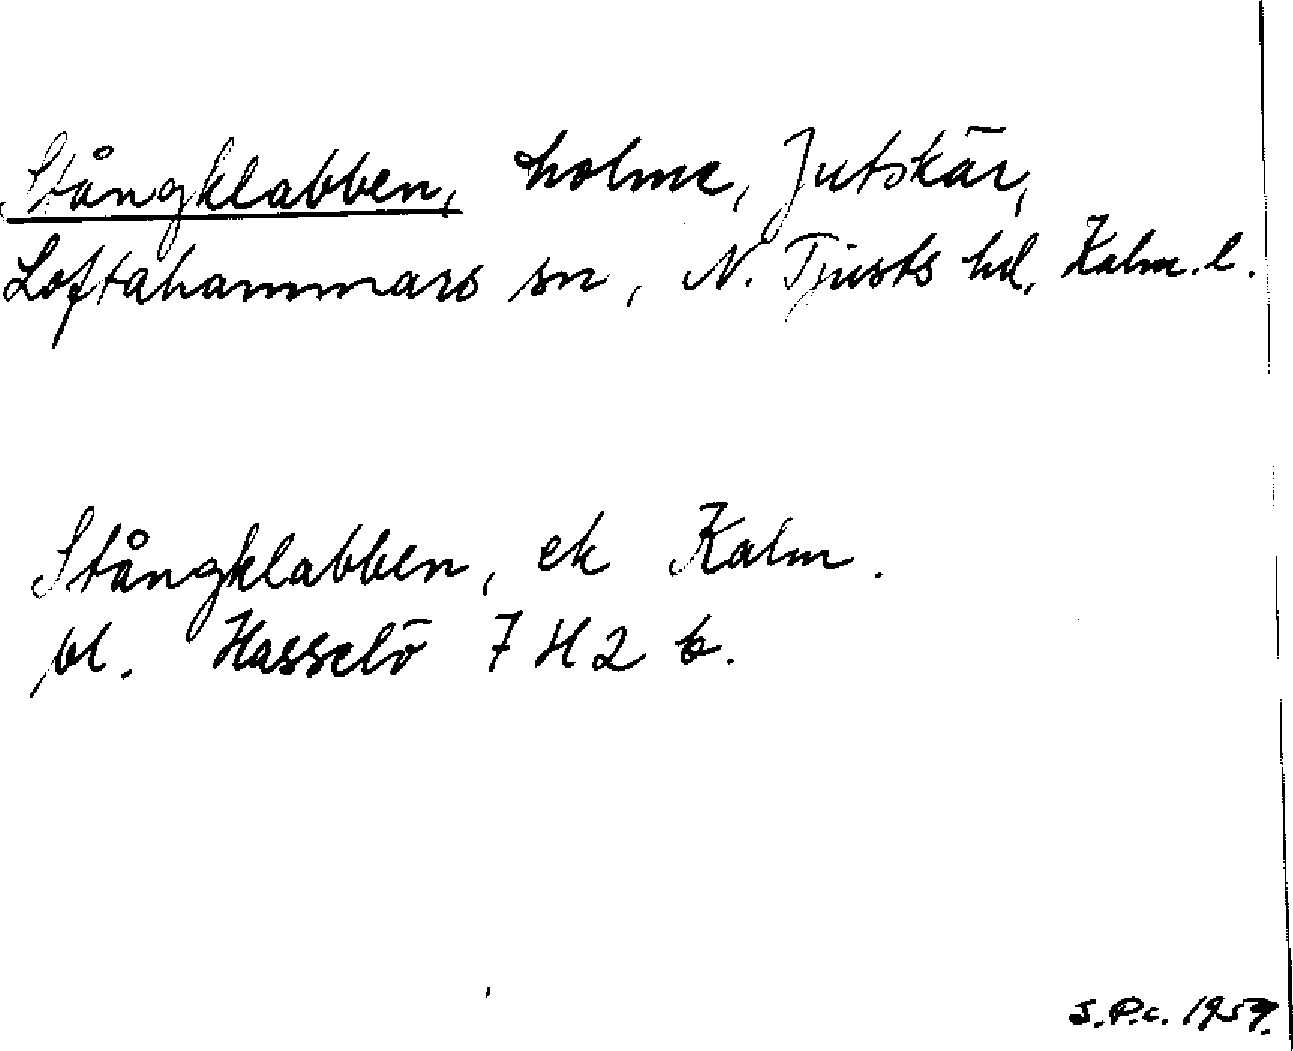 Stångklabben, holme, Jutskär,
Loftahammars sn, N. Tjusts hd, Kalm. l.
Stångklabben, ek Kalm.
bl. Hasselö 7 H 2 b.
S.P.c. 1959.